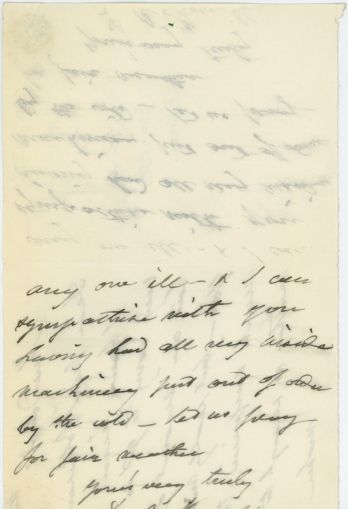 any one ill – & I can
sympathise with you
having had all my inside
machinery put out of order
by the cold – let us pray
for fair weather
Yours very truly